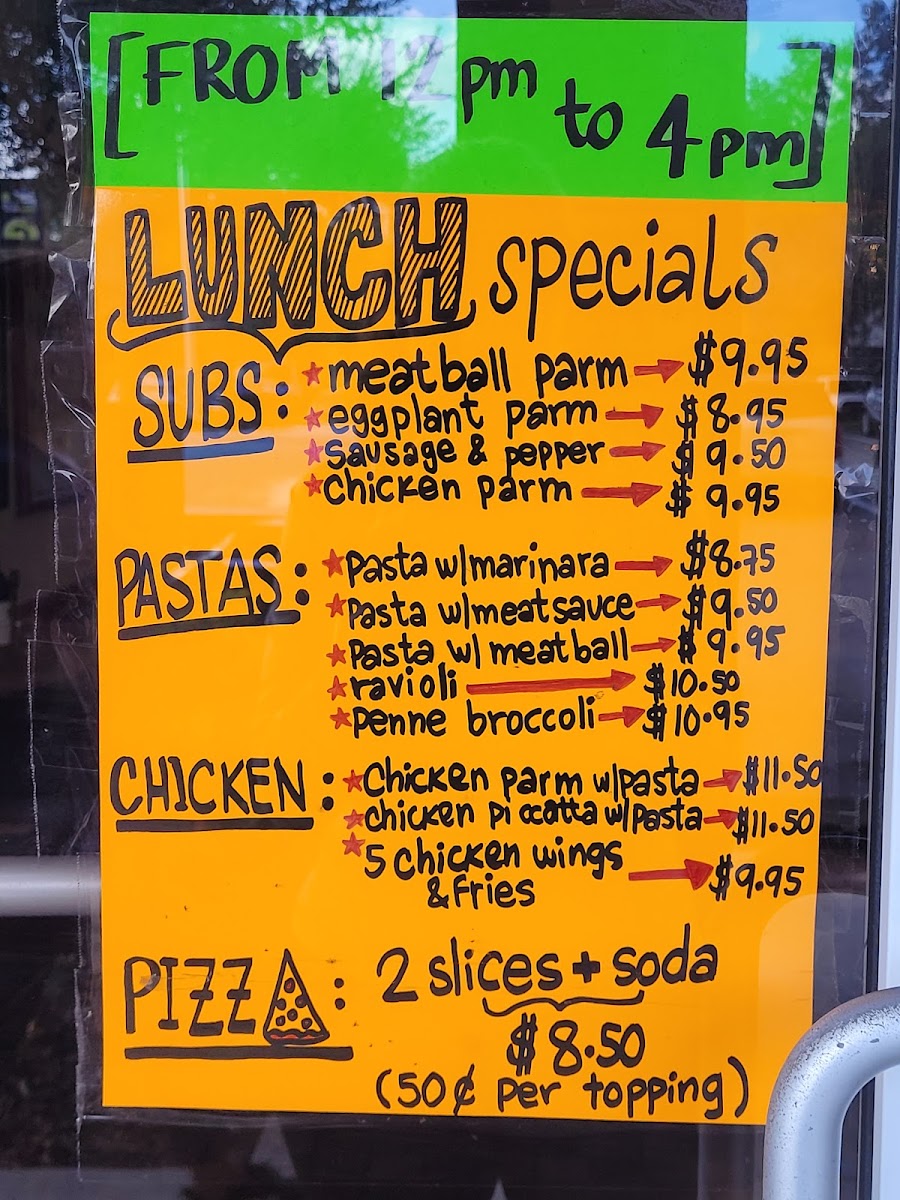 [FROM 12 pm to 4 pm]
LUNCH specials
SUBS: ★ meatball parm → $9.95
★ eggplant parm → $8.95
★ sausage & pepper → $9.50
★ chicken parm → $9.95
PASTAS: ★ Pasta w/marinara → $8.75
★ Pasta w/meat sauce → $9.50
★ Pasta w/ meatball → $9.95
★ ravioli → $10.50
★ penne broccoli → $10.95
CHICKEN: ★ Chicken parm w/pasta → $11.50
★ chicken piccatta w/pasta → $11.50
★ 5 chicken wings
& fries → $9.95
PIZZA: 2 slices + soda
$8.50
(50¢ per topping)